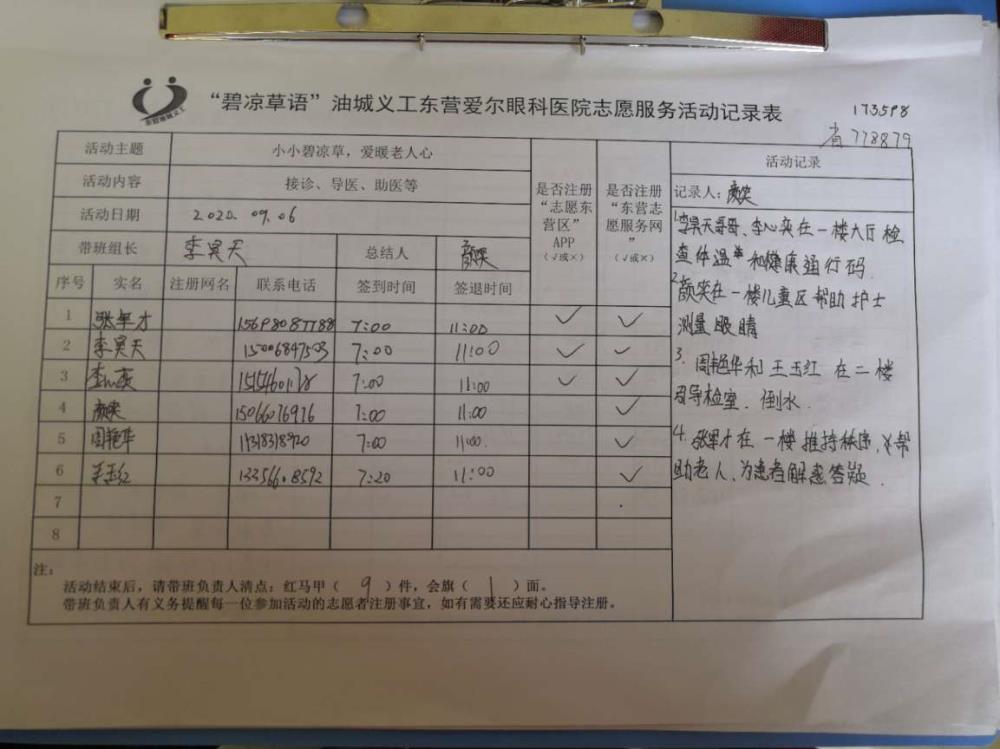 “碧凉草语”油城义工东营爱尔眼科医院志愿服务活动记录表
173598
省 778879
活动主题 小小碧凉草，爱暖老人心
活动内容 接诊、导医、助医等
活动日期 2020.09.06
带班组长 李昊天 总结人 颜笑
序号 实名 注册网名 联系电话 签到时间 签退时间
是否注册
“志愿东
营区”
APP
（√或×）
是否注册
“东营志
愿服务网
”
（√或×）
1 张军才 15698087788 7:00 11:00 ✓ ✓
2 李昊天 15006847503 7:00 11:00 ✓ ✓
3 7:00 11:00 ✓ ✓
4 颜笑 15066076976 7:00 11:00 ✓
5 周艳华 7:00 11:00 ✓
6 王玉红 13356608592 7:20 11:00 ✓
7
8
注：
活动结束后，请带班负责人清点：红马甲（ 9 ）件，会旗（ 1 ）面。
带班负责人有义务提醒每一位参加活动的志愿者注册事宜，如有需要还应耐心指导注册。
活动记录
记录人：颜笑
1.李昊天哥哥、李心 在一楼大厅检
查体温 和健康通行码.
2.颜笑在一楼儿童区帮助护士
测量眼睛
3.周艳华和王玉红在二楼
引导检室.倒水.
4.张军才在一楼维持秩序, 帮
助老人、为患者解惑答疑.